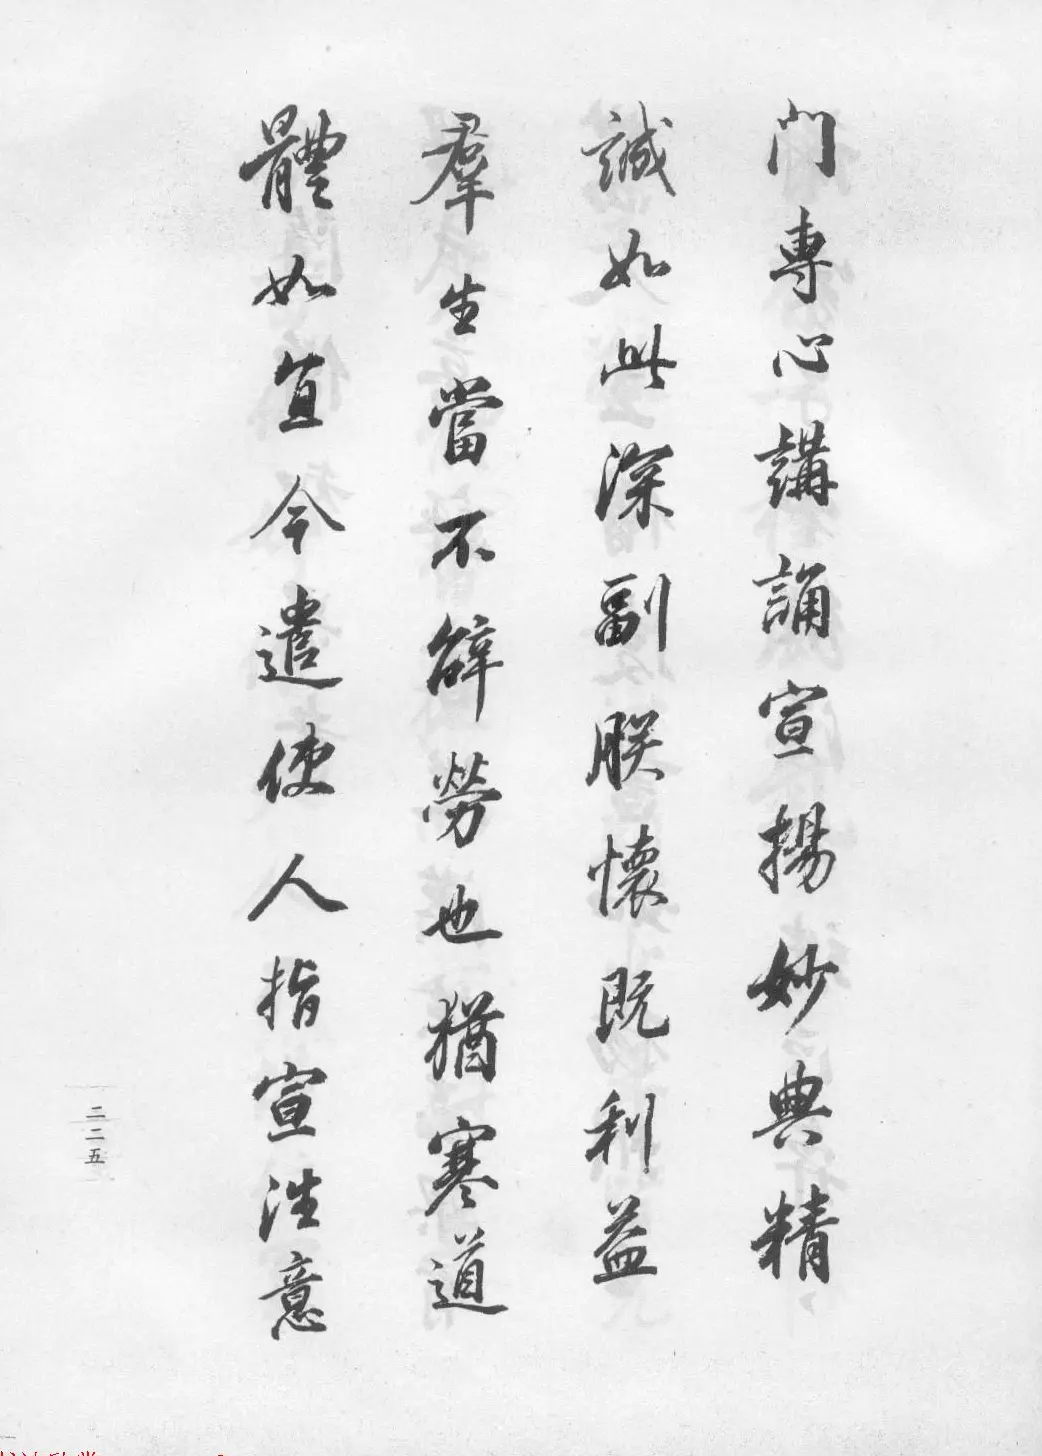 門專心講誦宣揚妙典精
誠如此深副朕懷既利益
羣生當不辭勞也猶寒道
體如宜今遣使人指宣往意
二二五